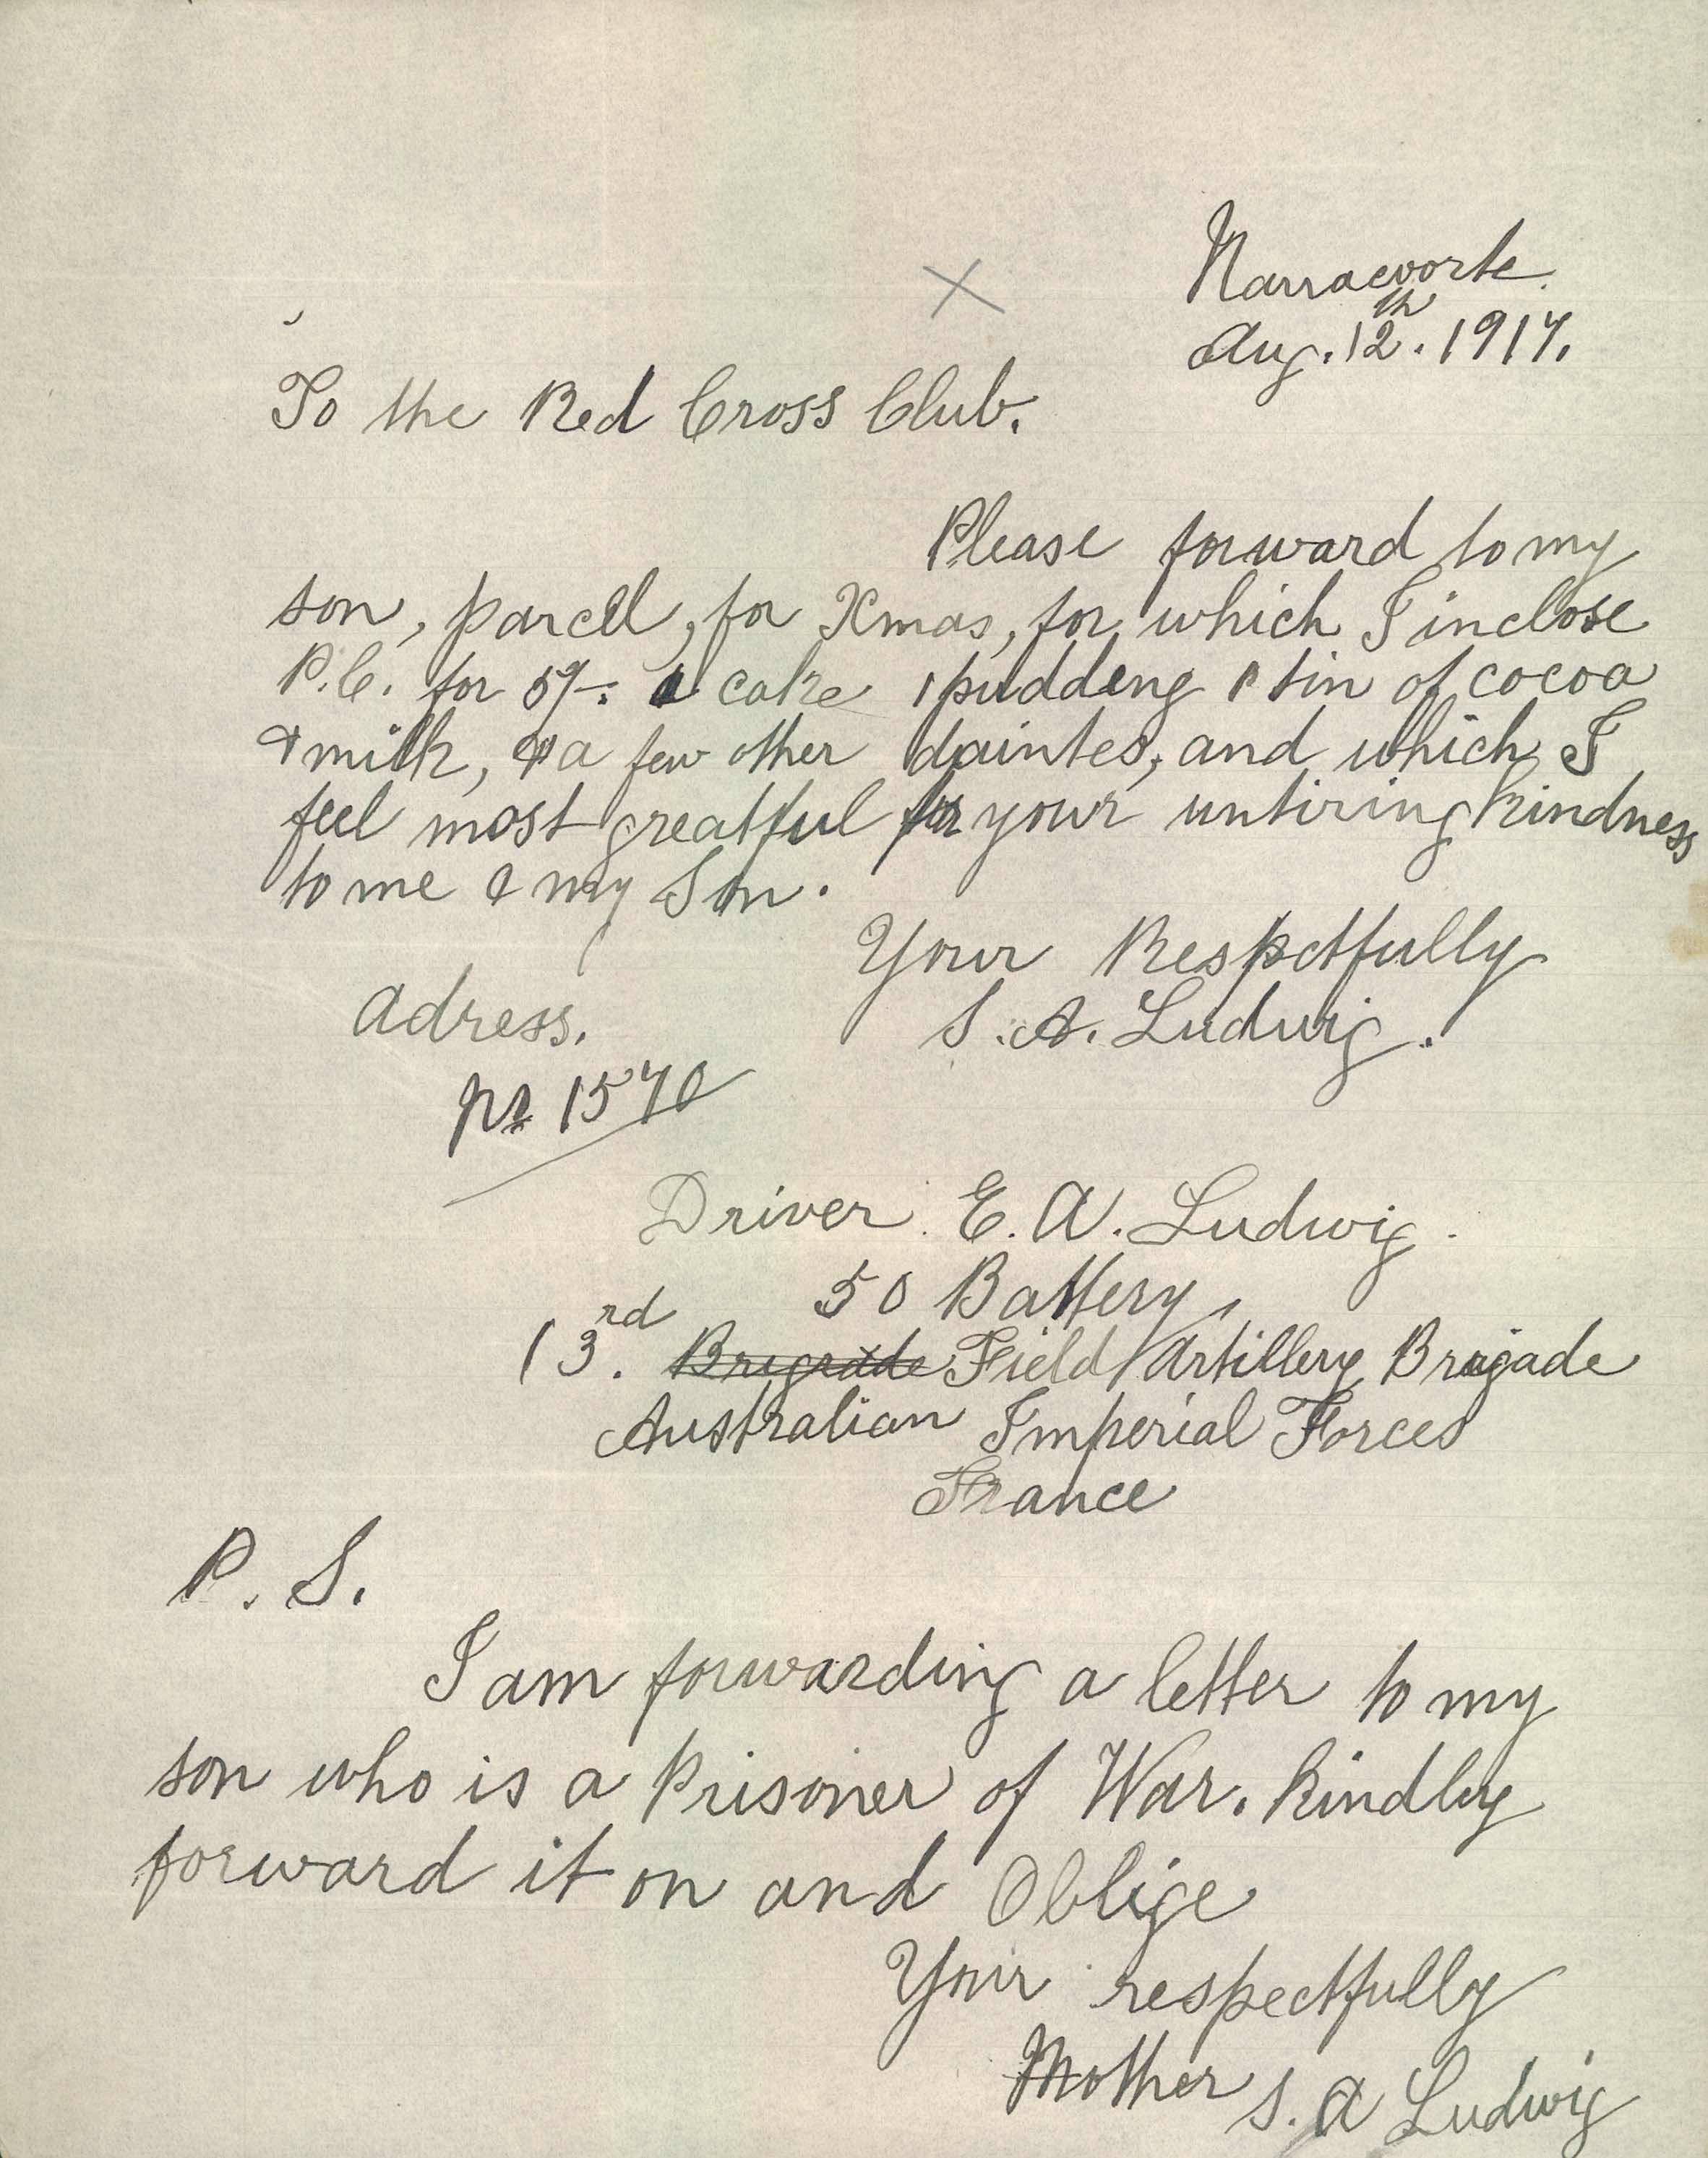 Narracoorte
Aug. 12th. 1917.
To the Red Cross Club.
Please forward to my
son, parcel, for Xmas, for which I inclose
P.C. for 5/-. 1 cake 1 puddeng 1 tin of cocoa
& milk, & a few other daintes, and which I
feel most greatful for your untiring kindness
to me & my Son.
Your Respctfully
S. A. Ludwig.
Adress.
No 1570
Driver. E. A. Ludwig.
50 Battery,
13rd. Brigrade Field Artillery Brigade
Australian Imperial Forces
France
P. S.
I am forwarding a letter to my
son who is a Prisoner of War. Kindly
forward it on and Oblige
Your respectfully
Mother S. A Ludwig